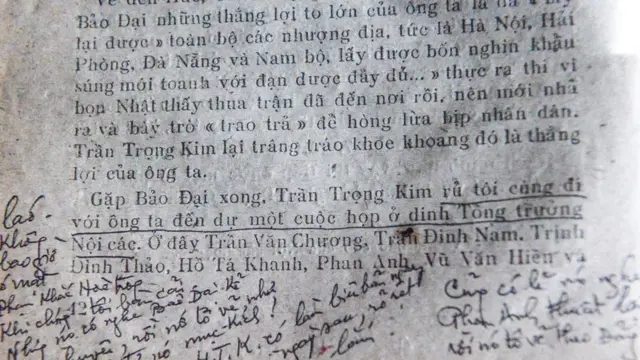 Về đến Huế,
Bảo Đại những thắng lợi to lớn của ông ta là đã « lấy
lại được » toàn bộ các nhượng địa, tức là Hà Nội, Hải
Phòng, Đà Nẵng và Nam bộ, lấy được bốn nghìn khẩu
súng mới toanh với đạn dược đầy đủ... » thực ra thì vì
bọn Nhật thấy thua trận đã đến nơi rồi, nên mới nhả
ra và bày trò « trao trả » để hòng lừa bịp nhân dân.
Trần Trọng Kim lại trâng tráo khoe khoang đó là thắng
lợi của ông ta.
Gặp Bảo Đại xong, Trần Trọng Kim rủ tôi cùng đi
với ông ta đến dự một cuộc họp ở dinh Tổng trưởng
Nội các. Ở đây Trần Văn Chương, Trần Đình Nam, Trịnh
Đình Thảo, Hồ Tá Khanh, Phan Anh, Vũ Văn Hiền và
láo.
Không
bao giờ
có mặt
Phạm Khắc Hoè họp
Khi chúng tôi bàn cãi
Nhưng nó có nghe Bảo Đại kể
rồi nó tô vẽ như
nó mục kích!
T.T.K. có làm biên bản
ngay sau, rõ nét
lắm.
Cũng có lẽ nó nghe
Phan Anh thuật lại
rồi nó tô vẽ theo Đảng